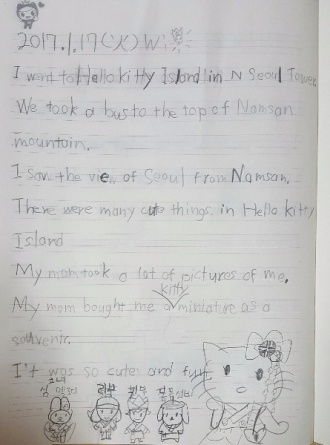 2017.1.17(火) W:
I went to Hello kitty Island in N Seoul Tower
We took a bus to the top of Namsan
mountain.
I saw the view of Seoul from Namsan.
There were many cute things in Hello kitty
Island
My mom took a lot of pictures of me.
kitty
My mom bought me a miniature as a
souvenir.
I't was so cute and fun